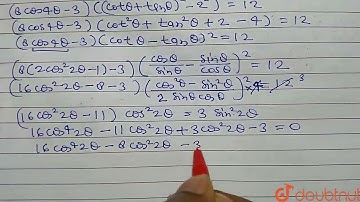 (8cos4θ-3)((cotθ+tanθ)²-2²) = 12
(8cos4θ-3)(cot²θ+tan²θ+2-4) = 12
(8cos4θ-3)(cotθ-tanθ)² = 12
(8(2cos²2θ-1)-3)(cosθ/sinθ - sinθ/cosθ)² = 12
(16cos²2θ-8-3)((cos²θ-sin²θ)/(2 sinθcosθ))² ×4 = 12 3
(16cos²2θ-11) cos²2θ = 3 sin²2θ
16cos⁴2θ-11cos²2θ+3cos²2θ-3 = 0
16cos⁴2θ-8cos²2θ-3
doubtnut